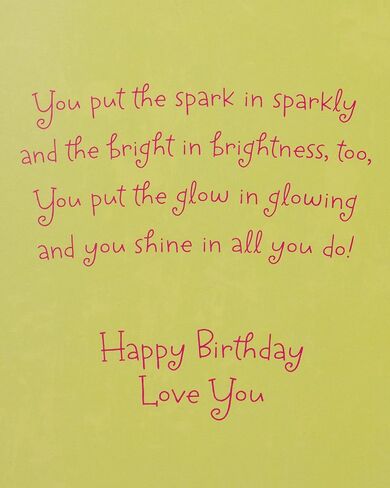 You put the spark in sparkly
and the bright in brightness, too,
You put the glow in glowing
and you shine in all you do!
Happy Birthday
Love You